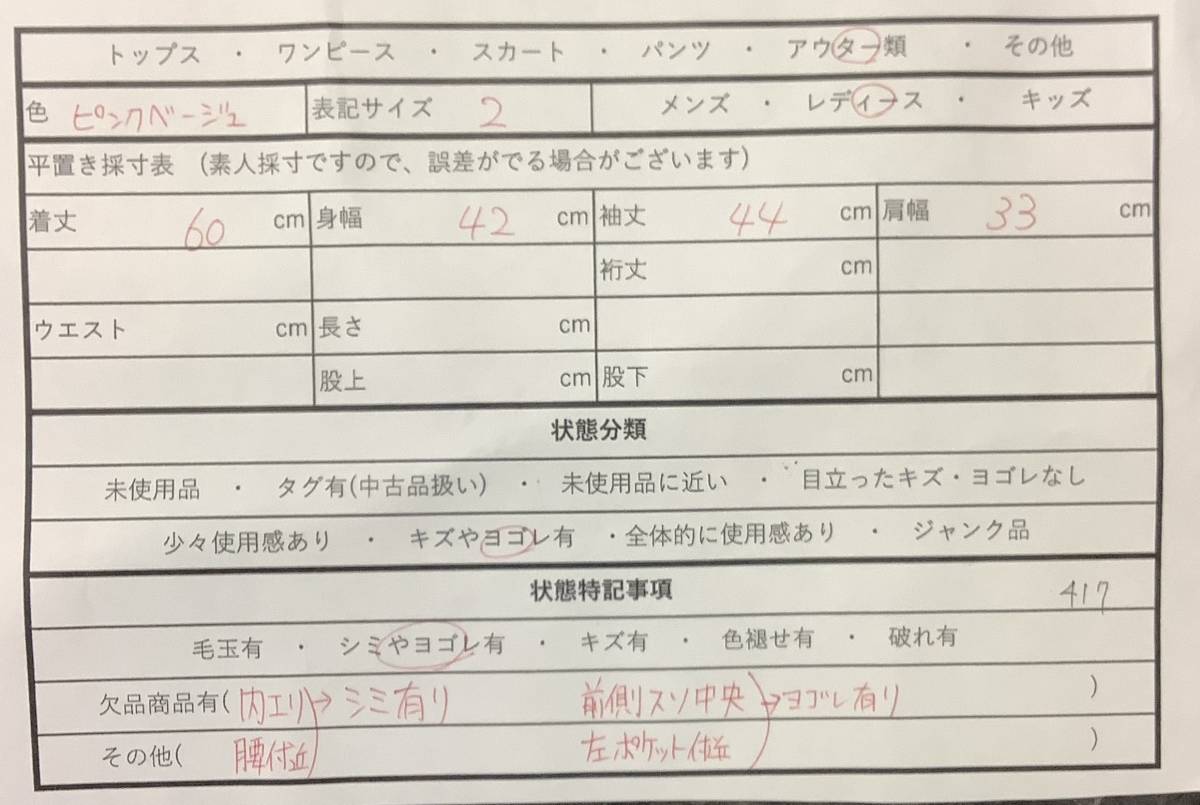 トップス ・ ワンピース ・ スカート ・ パンツ ・ アウター類 ・ その他
色 ピンクベージュ 表記サイズ 2 メンズ ・ レディース ・ キッズ
平置き採寸表 (素人採寸ですので、誤差がでる場合がございます)
着丈 60 cm 身幅 42 cm 袖丈 44 cm 肩幅 33 cm
裄丈 cm
ウエスト cm 長さ cm
股上 cm 股下 cm
状態分類
未使用品 ・ タグ有(中古品扱い) ・ 未使用品に近い ・ 目立ったキズ・ヨゴレなし
少々使用感あり ・ キズやヨゴレ有 ・全体的に使用感あり ・ ジャンク品
状態特記事項 417
毛玉有 ・ シミやヨゴレ有 ・ キズ有 ・ 色褪せ有 ・ 破れ有
欠品商品有( 内エリ→シミ有り 前側スソ中央→ヨゴレ有り )
その他( 腰付近 左ポケット付近 )